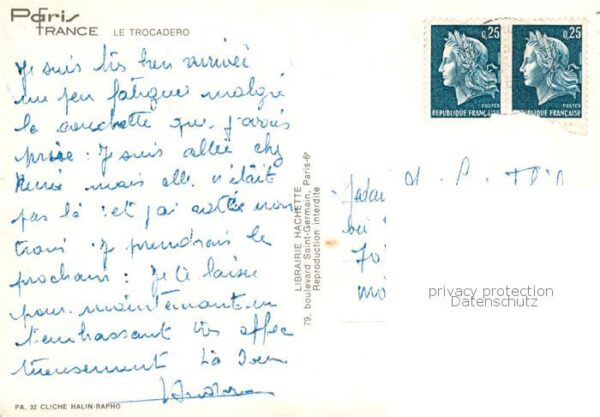 Paris
FRANCE LE TROCADERO
0,25 0,25
POSTES POSTES
REPUBLIQUE FRANÇAISE REPUBLIQUE FRANÇAISE
Je suis très bien arrivée
un peu fatiguée malgré
la couchette que j'avais
prise. Je suis allée chez
Renée mais elle n'était
pas là : et j'ai mon
train. Je prendrais le
prochain : Je te laisse
pour maintenant en
t'embrassant très affec
tueusement Ta
LIBRAIRIE HACHETTE
79, boulevard Saint-Germain, Paris-6e
Reproduction interdite
privacy protection
Datenschutz
PA. 32 CLICHE HALIN-RAPHO